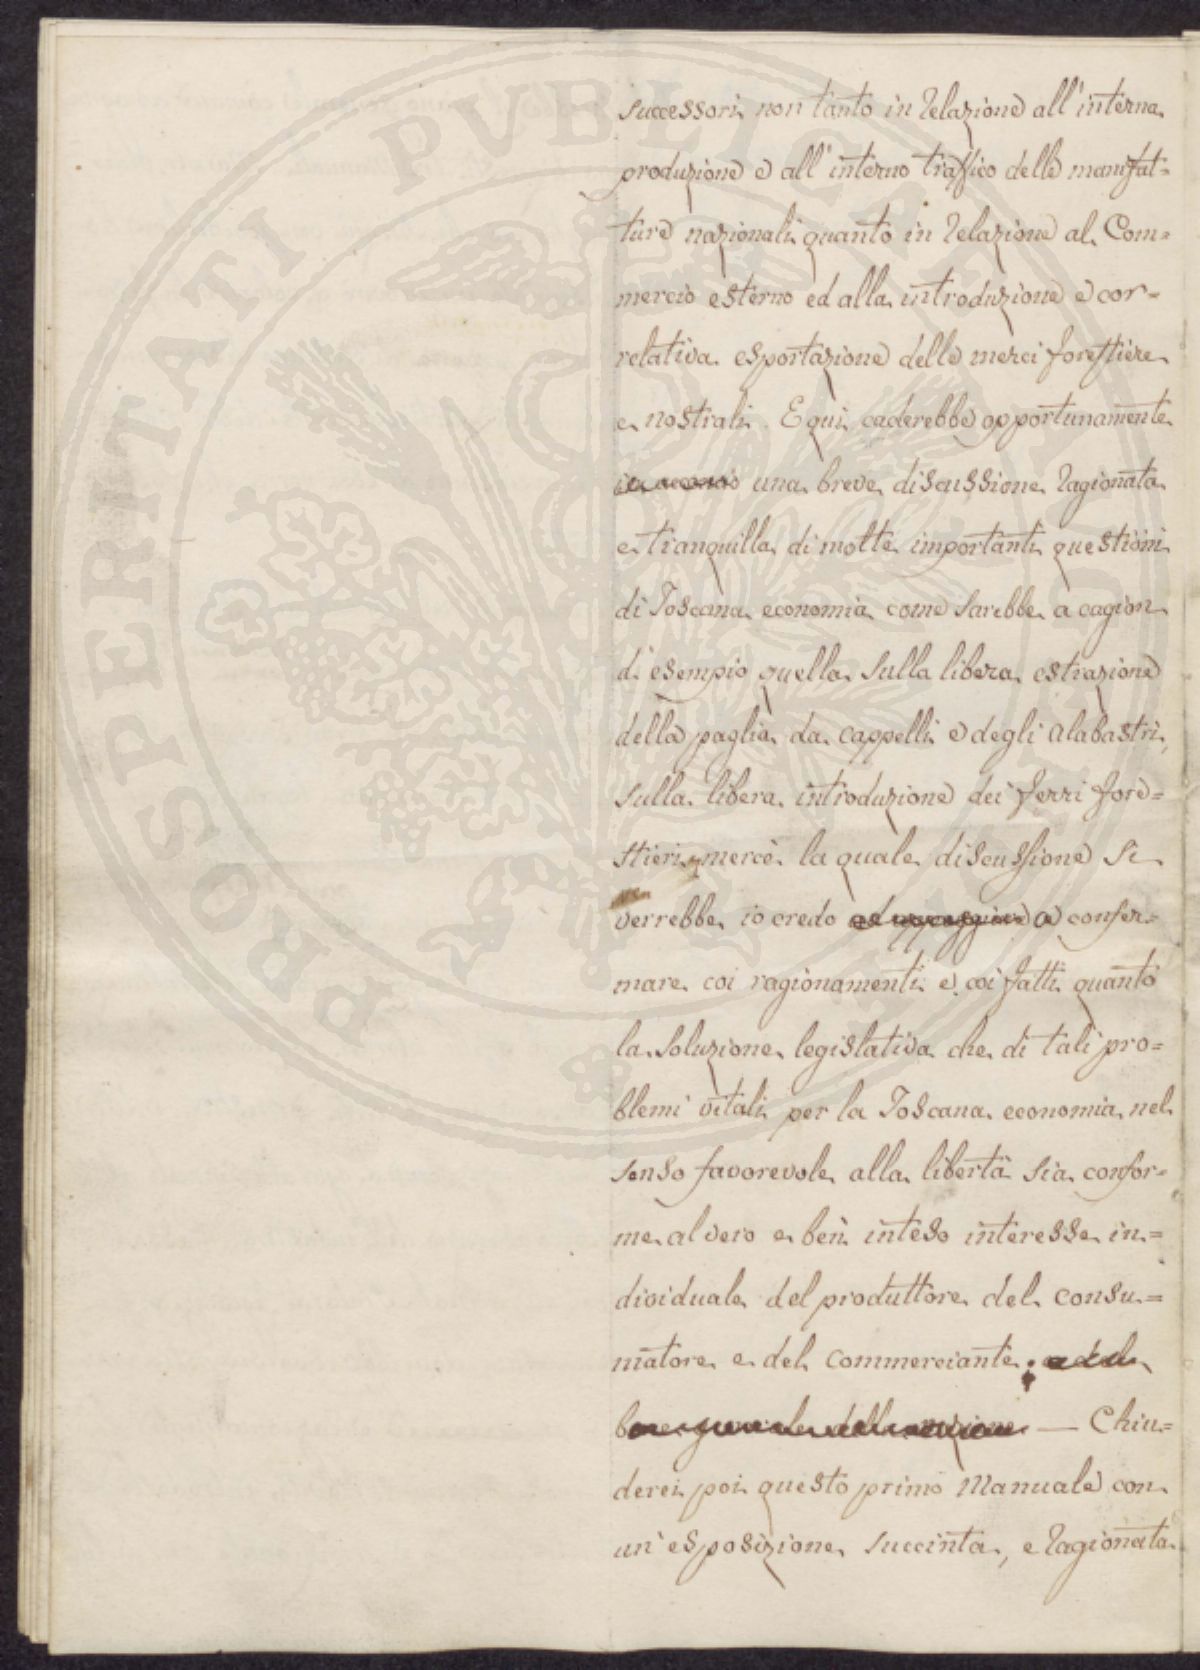 successori non tanto in relazione all'interna
produzione e all'interno traffico delle manifat=
ture nazionali quanto in relazione al Com=
mercio esterno ed alla introduzione e cor=
relativa esportazione delle merci forestiere
e nostrali. E qui caderebbe opportunamente
in acconcio una breve discussione ragionata
e tranquilla di molte importanti questioni
di Toscana economia come sarebbe a cagion
di esempio quella sulla libera estrazione
della paglia da cappelli e degli alabastri,
sulla libera introduzione dei ferri fore=
stieri, mercè la quale discussione si
verrebbe io credo a confer=
mare coi ragionamenti e coi fatti quanto
la soluzione legislativa che di tali pro=
blemi vitali per la Toscana economia nel
senso favorevole alla libertà sia confor=
me al vero e ben inteso interesse in=
dividuale del produttore del consu=
matore e del commerciante. e del
bene generale della nazione — Chiu=
derei poi questo primo Manuale con
un'esposizione succinta, e ragionata
PROSPERITATI PUBLICAE